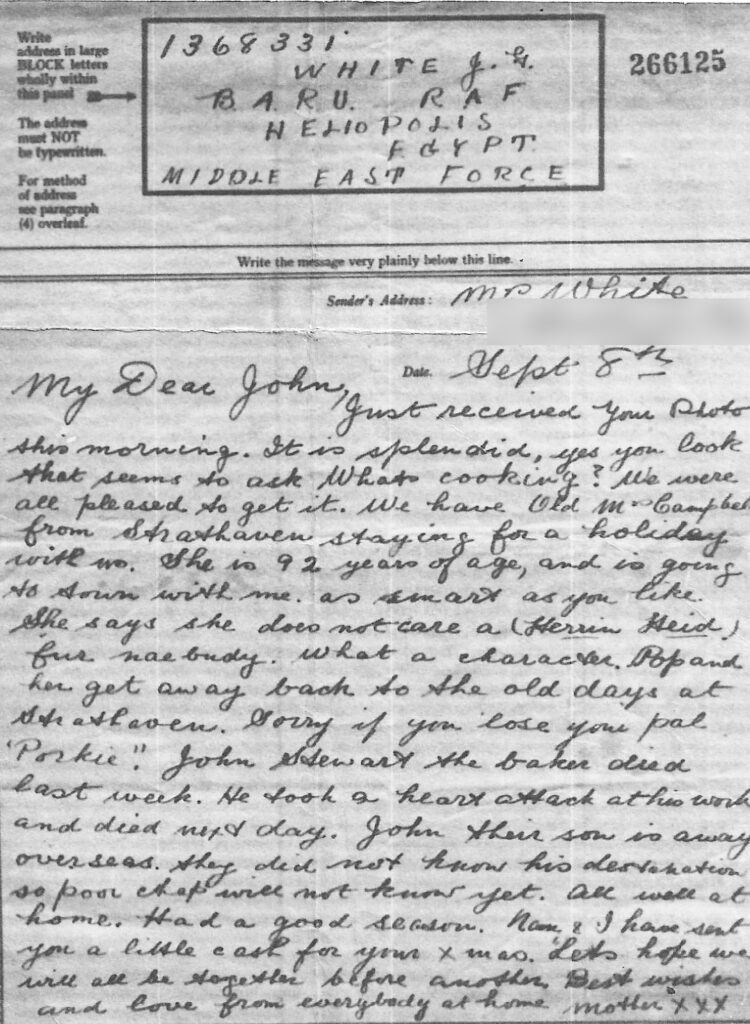 Write
address in large
BLOCK letters
wholly within
this panel
The address
must NOT
be typewritten.
For method
of address
see paragraph
(4) overleaf.
1368331
WHITE J. G.
B.A.R.U. RAF
HELIOPOLIS
EGYPT.
MIDDLE EAST FORCE
266125
Write the message very plainly below this line.
Sender's Address: Mrs White
Date. Sept 8th
My Dear John,
Just received Your Photo
this morning. It is splendid, yes you look
that seems to ask Whats cooking? We were
all pleased to get it. We have Old Mrs Campbel
from Strathaven staying for a holiday
with us. She is 92 years of age, and is going
to town with me. as smart as you like.
She says she does not care a (Herrin Heid)
fur naebudy. What a character. Pop and
her get away back to the old days at
Strathaven. Sorry if you lose your pal
"Porkie". John Stewart the baker died
last week. He took a heart attack at his work
and died next day. John their son is away
overseas. they did not know his destanation
so poor chap will not know yet. All well at
home. Had a good season. Nan & I have sent
you a little cash for your xmas. Lets hope we
will all be together before another. Best wishes
and love from everybody at home Mother XXX